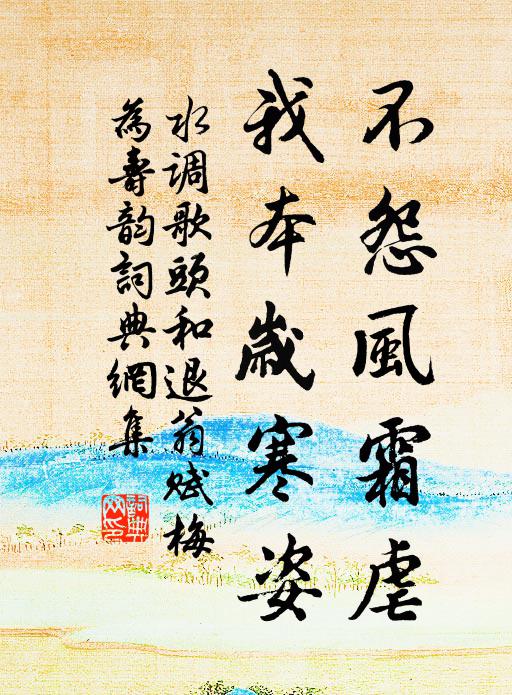 不怨風霜虐
我本歲寒姿
水调歌頭和退翁赋梅
為壽韵詞典網集